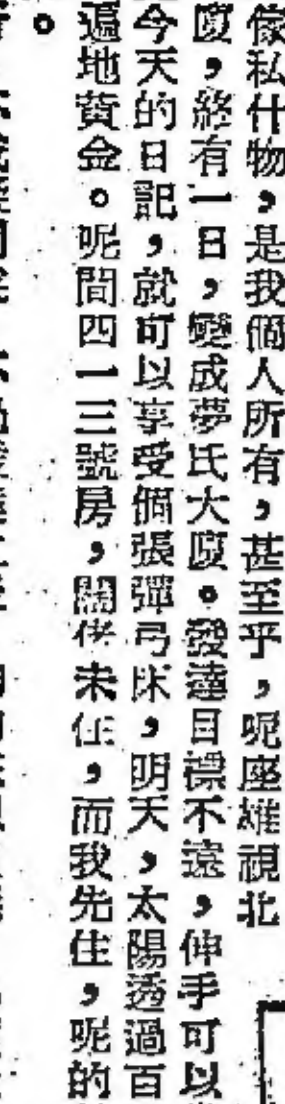 傢私什物，是我個人所有，甚至乎，呢座雄視北
廈，終有一日，變成夢氏大廈。發達目標不遠，伸手可以
今天的日記，就可以享受個張彈弓床，明天，太陽透過百
遍地黃金。呢間四一三號房，闊佬未住，而我先住，呢的
。